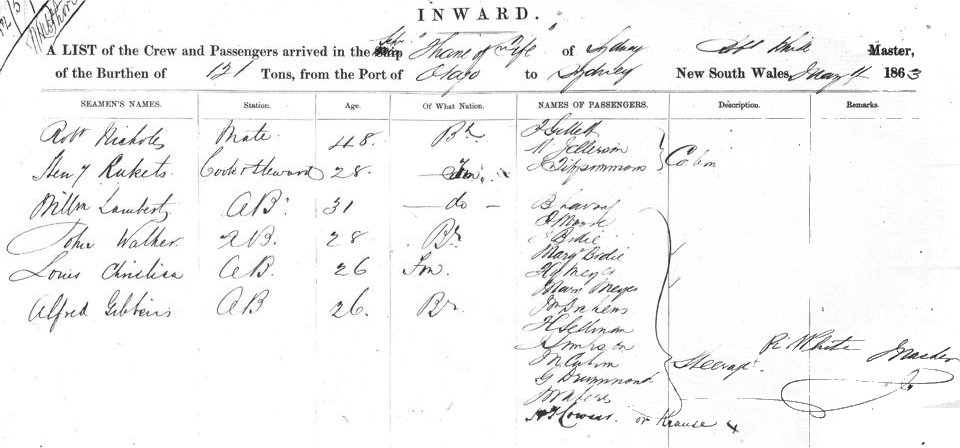 INWARD.
A LIST of the Crew and Passengers arrived in the Ship "Thane of Fife" of Sydney White Master,
of the Burthen of 121 Tons, from the Port of Otago to Sydney New South Wales, May 11 1863
SEAMEN'S NAMES. Station. Age. Of What Nation. NAMES OF PASSENGERS. Description. Remarks.
Robt Nicholes Mate 48 Br J Gillett
W. Jefferson
J Fitzsimmons Cabin
Heny Rukets Cook & Steward 28
Willm Lambert AB 31 — do —
J Moore
John Walker AB. 28 Br Bodie
Margt Bodie
Louis Christian AB. 26 Fn. Hy Meyer
Mary Meyer
Alfred Gibbins AB 26. Br. Jno Dickens
H Sellman
J Simpson
Steerage Rt White Master
G Drummond
or Krause